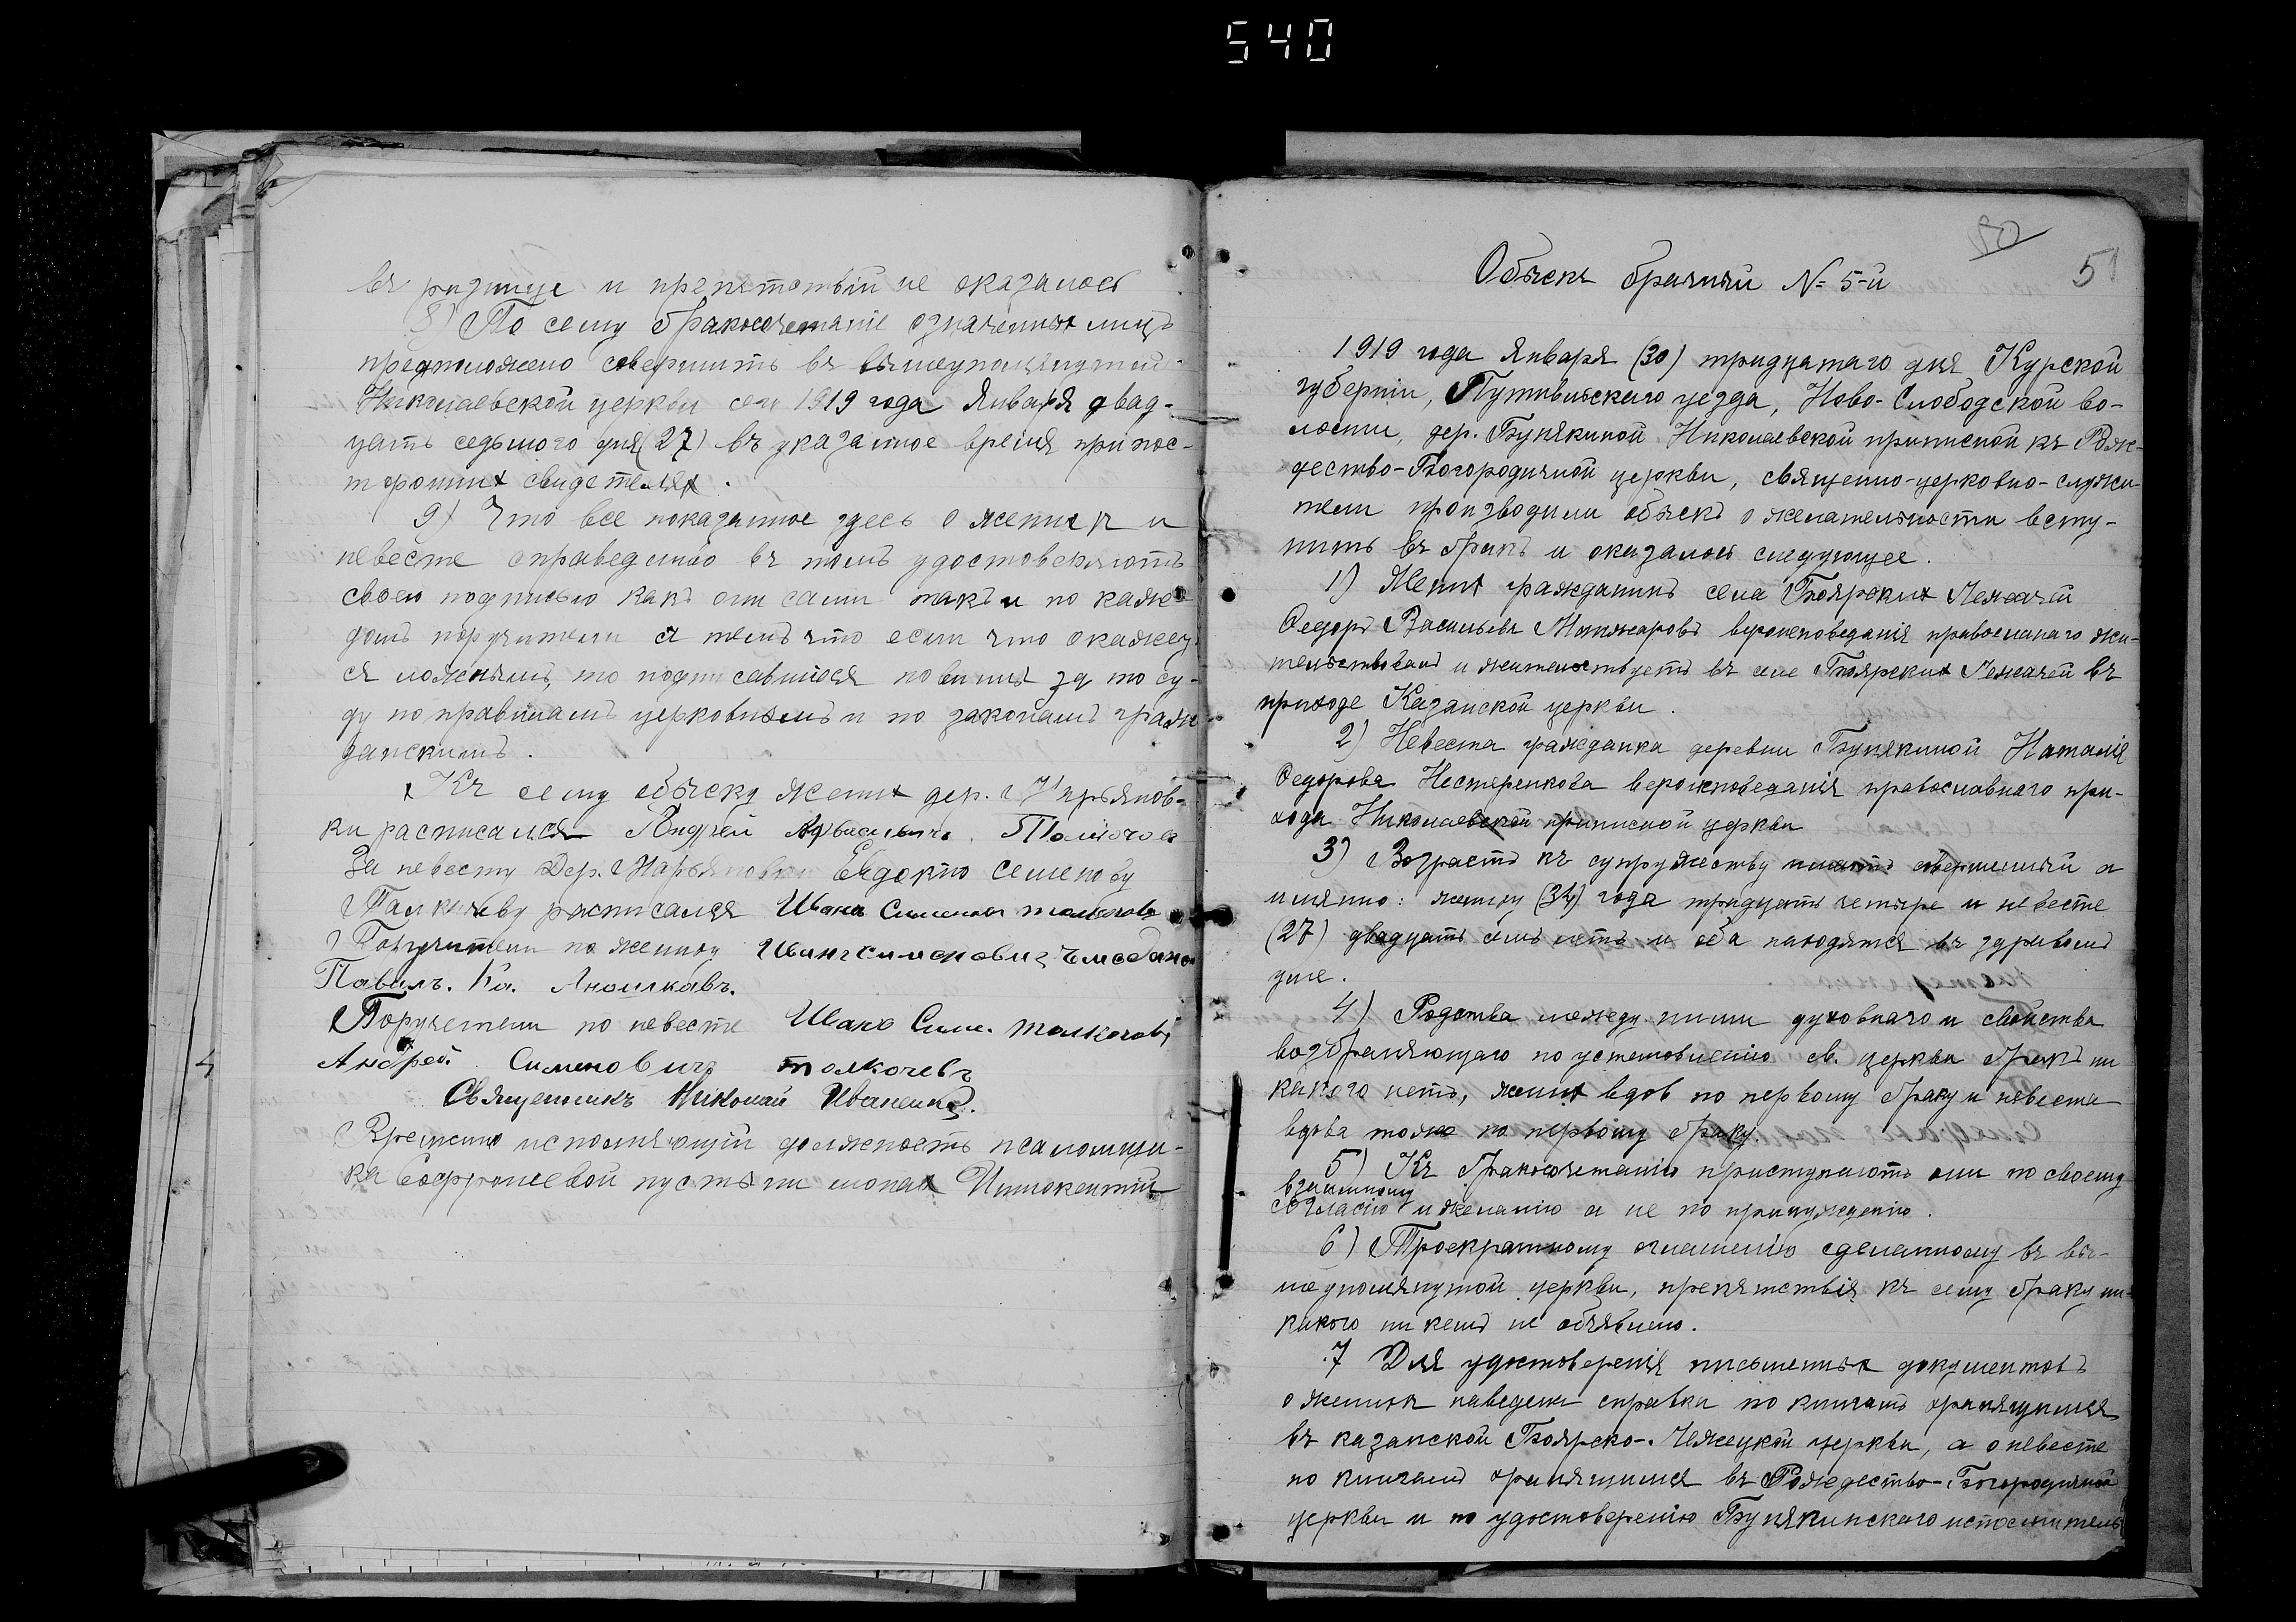 540
въ розницѣ и препятствій не оказалось
8) По сему бракосочетаніе означенныхъ лицъ
предположено совершить въ вышеупомянутой
Николаевской церкви сего 1919 года Января двад-
цать седьмого дня (27) въ указанное время при пос-
торонних свидетелях.
9) Что все показанное здесь о женихе и
невесте справедливо въ томъ удостоверяютъ
своею подписью какъ они сами такъ и по каж-
домъ поручители съ темъ что если что окажет
ся ложнымъ, то подписавшіеся повинны за то су-
ду по правиламъ церковнымъ и по законамъ граж
данскимъ.
Къ сему обыску жених дер. Марьянов-
ки расписался Андрей
За невесту Дер. Марьяновки Евдокію Семенову
Толкачеву расписался Иванъ Сименов толкачов
Поручители по жениху Иванъ Симонович
Павилъ. Ка. Аношкавъ.
Поручетели по невесте Иванъ Сим. толкочовъ
Андрей Сименовичъ толкочевъ
Священникъ Николай Иваненко.
Временно исполняющій должность псаломщи-
ка Софроніевой пустыни монах Иннокентій
4
50
5
Обыскъ брачный № 5-й
1919 года Января (30) тридцатаго дня Курской
губерніи, Путивльскаго уезда, Ново-Слободской во-
лости, дер. Бунякиной Николаевской приписной къ Рож-
дество-Богородичной церкви, священно-церковно-служи
тели производили обыскъ о желательности всту-
пить въ бракъ и оказалось следующее.
1) Жених гражданинъ села Боярских Лежачей
Федоръ Васильевъ Манжаровъ вероисповеданія православнаго жи-
тельствовалъ и жительствуетъ въ селе Боярских Лежачей въ
приходе Казанской церкви.
2) Невеста гражданка деревни Бунякиной Наталія
Федорова Нестеренкова вероисповеданія православнаго при-
хода Николаевской приписной церкви
3) Возрастъ къ супружеству имеютъ совершенный а
имянно: жениху (34) года тридцать четыре и невесте
(27) двадцать семь летъ и оба находятся въ здравомъ
уме.
4) Родства между ними духовнаго и свойства
возбраняющаго по установленію св. церкви бракъ ни
какого нетъ, жених вдов по первому браку и невеста
вдова тоже по первому браку.
5) Къ бракосочетанію приступаютъ они по своему
взаимному
согласію и желанію а не по принужденію.
6) Троекратному оглашенію сделанному въ вы-
шеупомянутой церкви, препятствія къ сему браку ни-
какого ни кемъ не объявлено.
7 Для удостоверенія письменныхъ документовъ
о женихе наведены справки по книгамъ хранящимся
въ казанской Боярско-Лежецкой церкви, а о невесте
по книгамъ хранящимся въ Рождество-Богородичной
церкви и по удостоверенію Бунякинскаго исполнитель